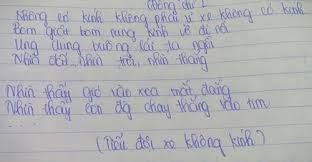 (Đồng chí)
Không có kính không phải vì xe không có kính
Bom giật bom rung kính vỡ đi rồi
Ung dung buồng lái ta ngồi
Nhìn đất, nhìn trời, nhìn thẳng
Nhìn thấy gió vào xoa mắt đắng
Nhìn thấy con đg chạy thẳng vào tim
.....
(Tiểu đội xe không kính)